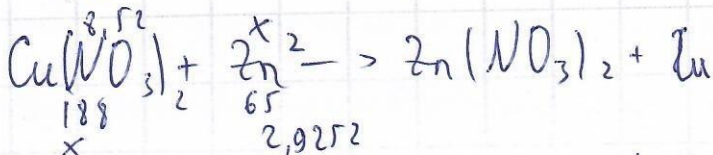 8,52 x 2
Cu(NO3)2 + Zn —> Zn(NO3)2 + Zu
188 65
x 2,9252